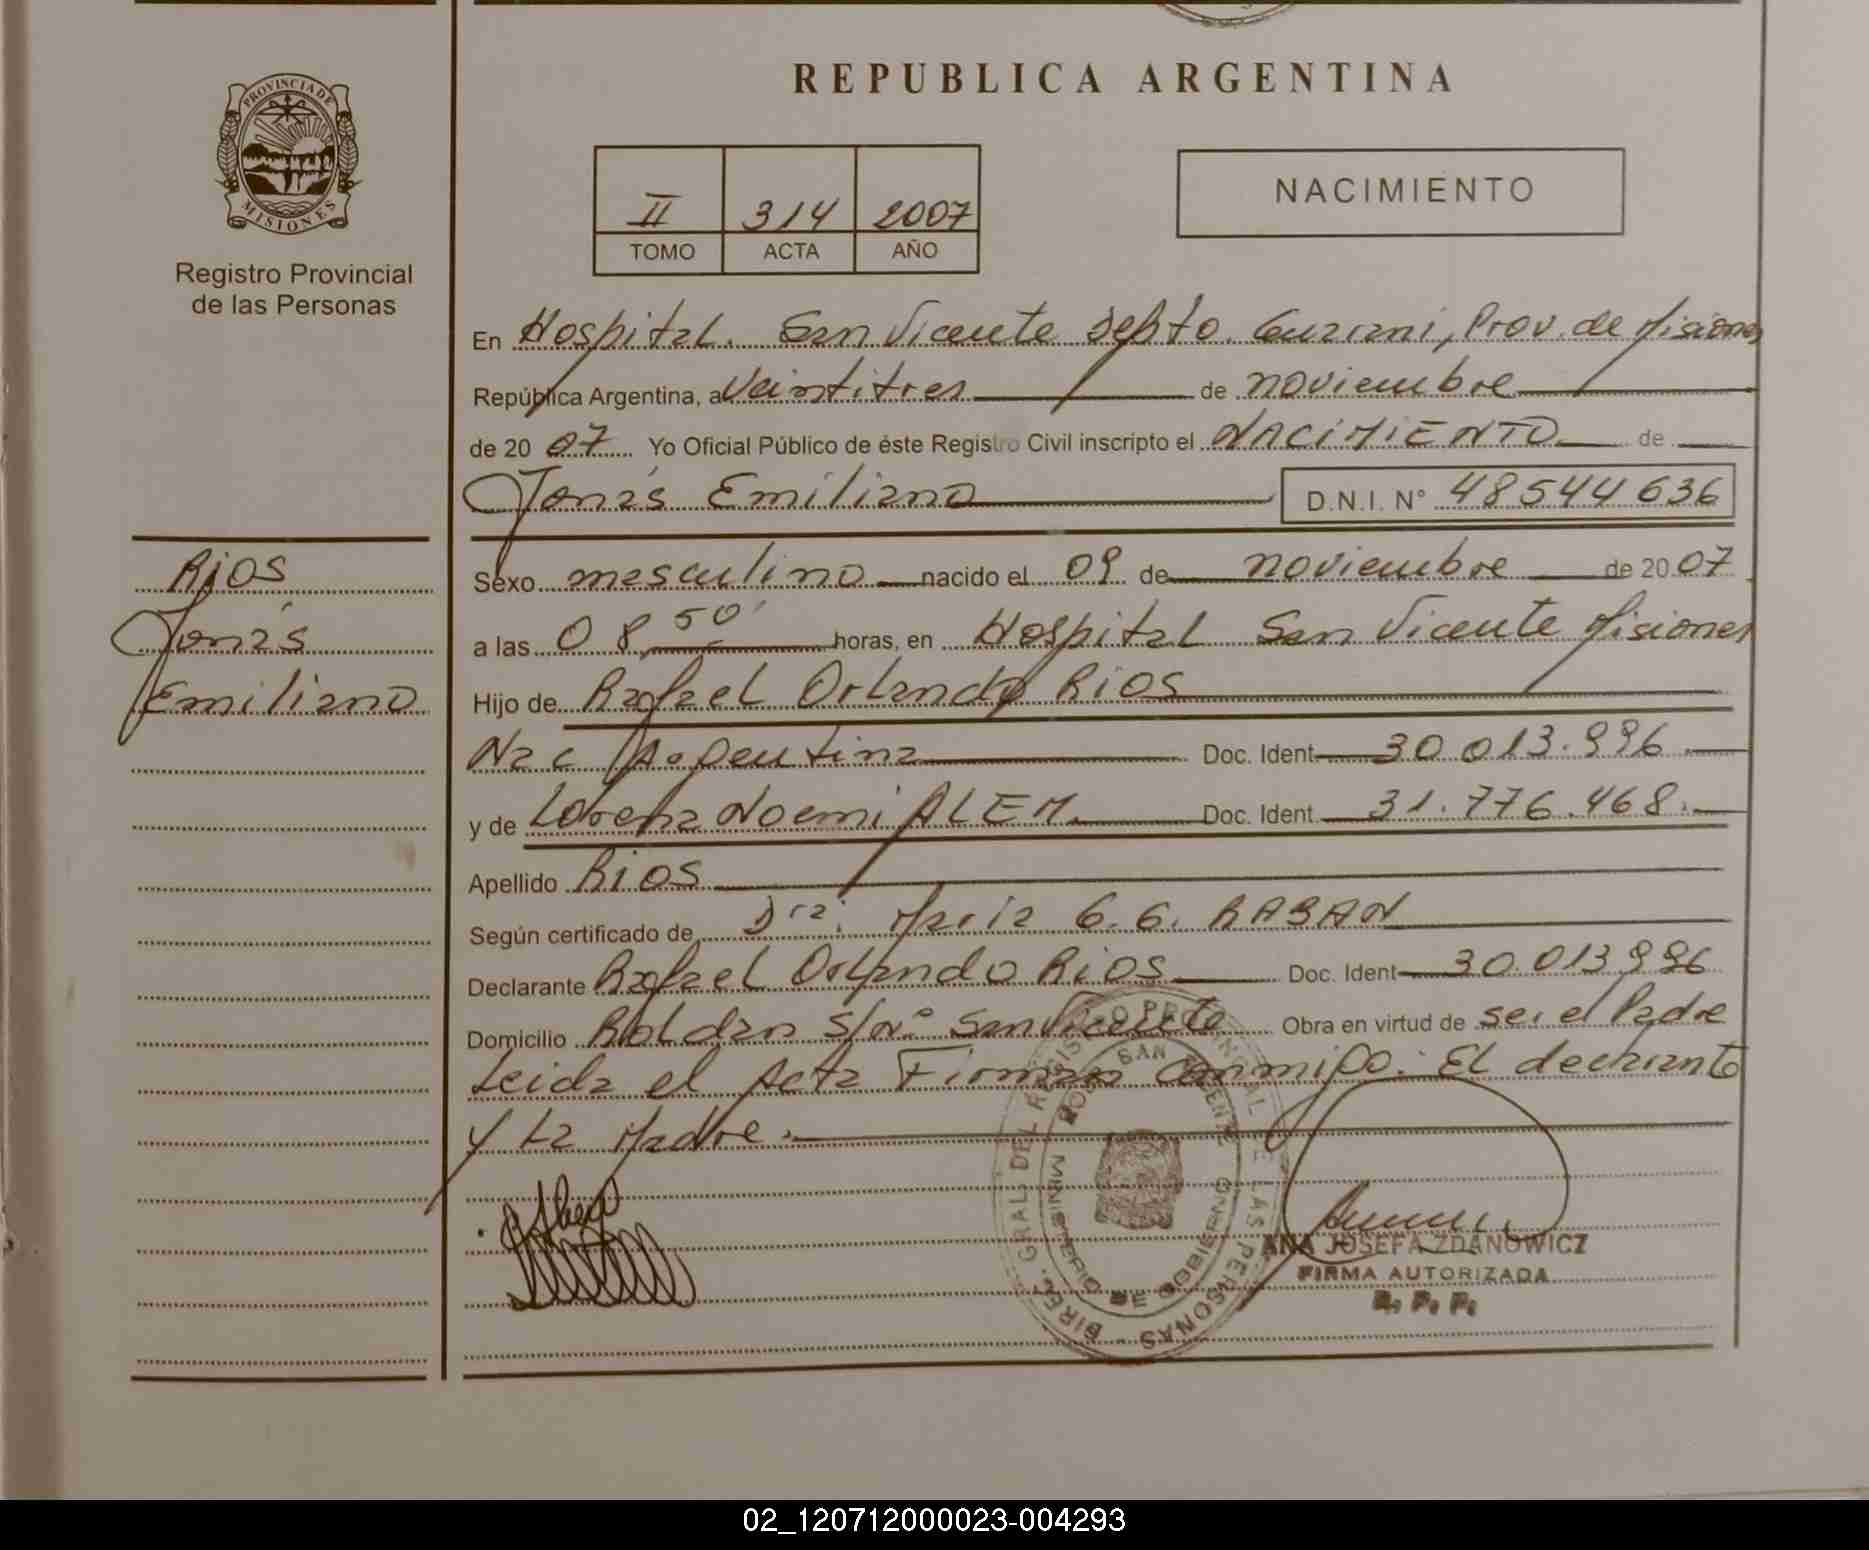 REPUBLICA ARGENTINA
PROVINCIA DE
MISIONES
Registro Provincial
de las Personas
II 314 2007
TOMO ACTA AÑO
NACIMIENTO
En Hospital. San Vicente Depto. Guarani, Prov. de Misiones
República Argentina, a Veintitres de noviembre
de 20 07 Yo Oficial Público de éste Registro Civil inscripto el NACIMIENTO de
Jonás Emiliano D.N.I. N° 48544636
RIOS
Jonás
Emiliano
Sexo masculino nacido el 09 de noviembre de 20 07
a las 08,50' horas, en Hospital San Vicente Misiones
Hijo de Rafael Orlando RIOS
Nac Argentina Doc. Ident 30.013.996
y de Lorena Noemi ALEM. Doc. Ident 31.776.468.
Apellido RIOS
Según certificado de Dra. Maria G. G. RABAN
Declarante Rafael Orlando RIOS Doc. Ident 30.013.996
Domicilio Roldan S/Nº San Vicente Obra en virtud de ser el Padre
Leida el Acta Firman conmigo: El declarante
y La Madre.
DIREC. GRAL. DEL REGISTRO PROVINCIAL DE LAS PERSONAS
SAN VICENTE
MINISTERIO DE GOBIERNO
ANA JOSEFA ZDANOWICZ
FIRMA AUTORIZADA
R. P. P.
02_120712000023-004293